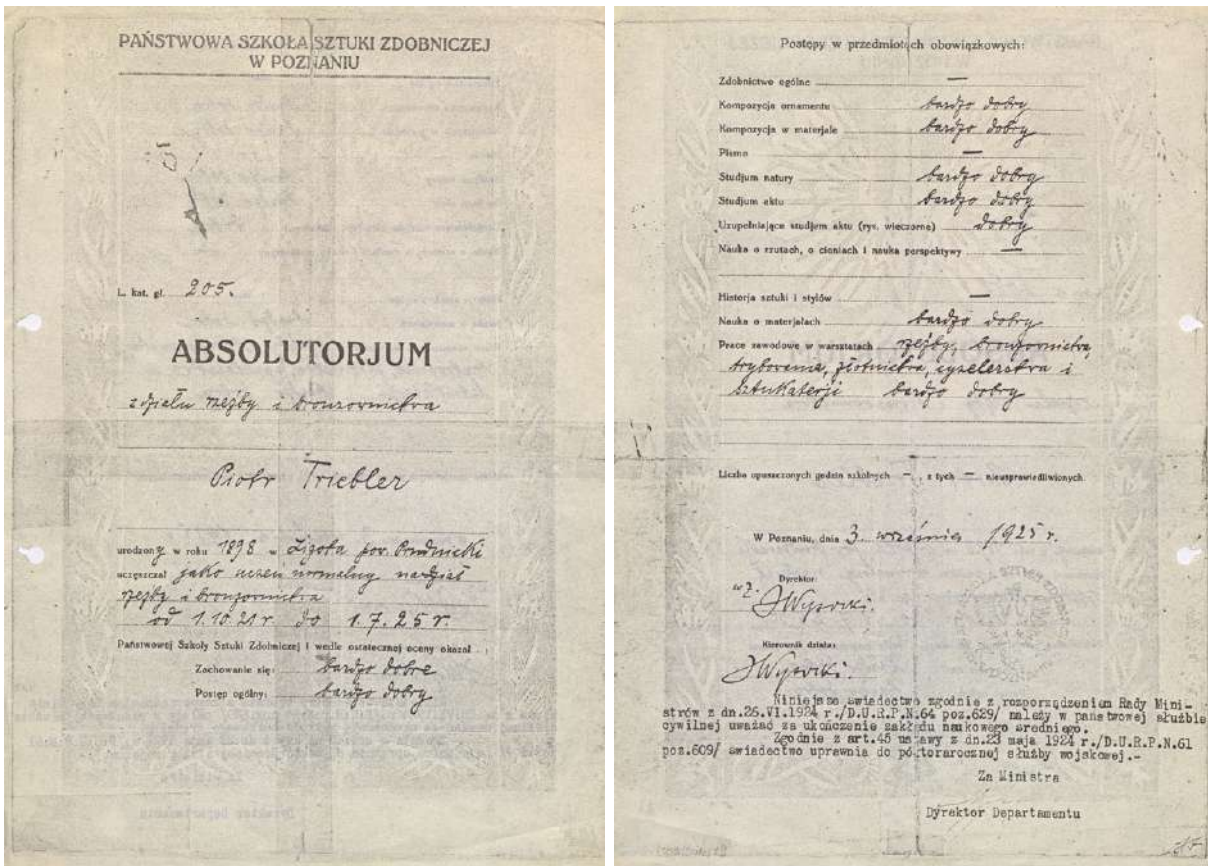 PAŃSTWOWA SZKOŁA SZTUKI ZDOBNICZEJ
W POZNANIU
L. kat. gł. 205.
ABSOLUTORJUM
z działu rzeźby i bronzownictwa
Piotr Triebler
urodzony w roku 1898 w Ligota pow. Prudnicki
uczęszczał jako uczeń normalny na dział
rzeźby i bronzownictwa
od 1.10.21 r. do 1.7.25 r.
Państwowej Szkoły Sztuki Zdobniczej i wedle ostatecznej oceny okazał
Zachowanie się: bardzo dobre
Postęp ogólny: bardzo dobry
Postępy w przedmiotach obowiązkowych:
Zdobnictwo ogólne —
Kompozycja ornamentu bardzo dobry
Kompozycja w materjale bardzo dobry
Pismo —
Studjum natury bardzo dobry
Studjum aktu bardzo dobry
Uzupełniające studjum aktu (rys. wieczorne) dobry
Nauka o rzutach, o cieniach i nauka perspektywy —
Historja sztuki i stylów —
Nauka o materjałach bardzo dobry
Prace zawodowe w warsztatach rzeźby, bronzownictwa,
trybowania, złotnictwa, cyzelerstwa i
sztukaterji bardzo dobry
Liczba opuszczonych godzin szkolnych —, z tych — nieusprawiedliwionych.
W Poznaniu, dnia 3. września 1925 r.
Dyrektor:
w z. JWysocki.
Kierownik działu:
JWysocki.
Niniejsze swiadectwo zgodnie z rozporządzeniem Rady Mini-
strów z dn.26.VI.1924 r./D.U.R.P.N.64 poz.629/ należy w panstwowej służbie
cywilnej uważać za ukończenie zakładu naukowego sredniego.
Zgodnie z art.45 ustawy z dn.23 maja 1924 r./D.U.R.P.N.61
poz.609/ swiadectwo uprawnia do półtorarocznej służby wojskowej.-
Za Ministra
Dyrektor Departamentu